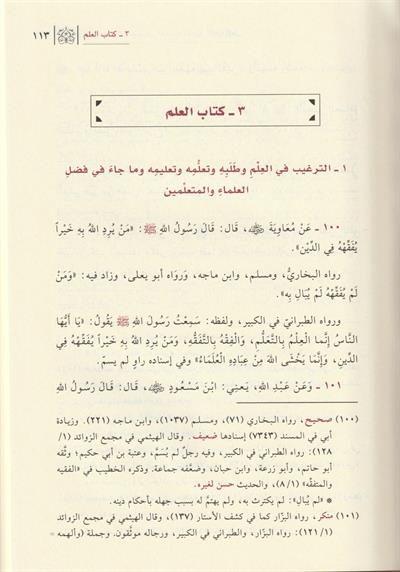 ٣ ـ كتاب العلم ١١٣
٣ ـ كتاب العلم
١ ـ الترغيب في العِلْمِ وطَلَبِهِ وتعلُّمِه وتعليمِه وما جاءَ في فضلِ
العلماءِ والمتعلّمين
١٠٠ ـ عَنْ مُعَاوِيَةَ ﷺ، قَالَ: قَالَ رَسُولُ اللهِ ﷺ: «مَنْ يُرِدِ اللهُ بِهِ خَيْراً
يُفَقِّهْهُ فِي الدِّيْنِ».
رواه البخاريُّ، ومسلم، وابن ماجه، وَرَواه أبو يعلى، وزاد فيه: «وَمَنْ
لَمْ يُفَقِّهْهُ لَمْ يُبَالِ بِهِ».
ورواه الطبرانيّ في الكبير، ولفظه: سَمِعْتُ رَسُولَ اللهِ ﷺ يَقُولُ: «يَا أَيُّهَا
النَّاسُ إِنَّمَا الْعِلْمُ بِالتَّعَلُّمِ، وَالْفِقْهُ بِالتَّفَقُّهِ، وَمَنْ يُرِدِ اللهُ بِهِ خَيْراً يُفَقِّهْهُ فِي
الدِّينِ، وَإِنَّمَا يَخْشَى اللهَ مِنْ عِبَادِهِ الْعُلَمَاءُ» وفي إسناده راوٍ لم يسمّ.
١٠١ ـ وَعَنْ عَبْدِ اللهِ، يَعنِي: ابْنَ مَسْعُودٍ، قَالَ: قَالَ رَسُولُ اللهِ
(١٠٠) صحيح، رواه البخاري (٧١)، ومسلم (١٠٣٧)، وابن ماجه (٢٢١). وزيادة
أبي في المسند (٧٣٤٣) إسنادها ضعيف. وقال الهيثمي في مجمع الزوائد (١/
١٢٨): رواه الطبراني في الكبير، وفيه رجلٌ لم يُسَمَّ، وعتبة بن أبي حكيم؛ وثّقه
أبو حاتم، وأبو زرعة، وابن حبان، وضعَّفه جماعة. وذكره الخطيب في «الفقيه
والمتفقّه» (٨/١)، والحديث حسن لغيره.
* «لم يُبَالِ»: لم يكترث به، ولم يهتمّ له بسبب جهله بأحكام دينه.
(١٠١) منكر، رواه البزّار كما في كشف الأستار (١٣٧)، وقال الهيثمي في مجمع الزوائد
(١٢١/١): رواه البزّار، والطبراني في الكبير، ورجاله موثّقون. وجملة (وألهمه